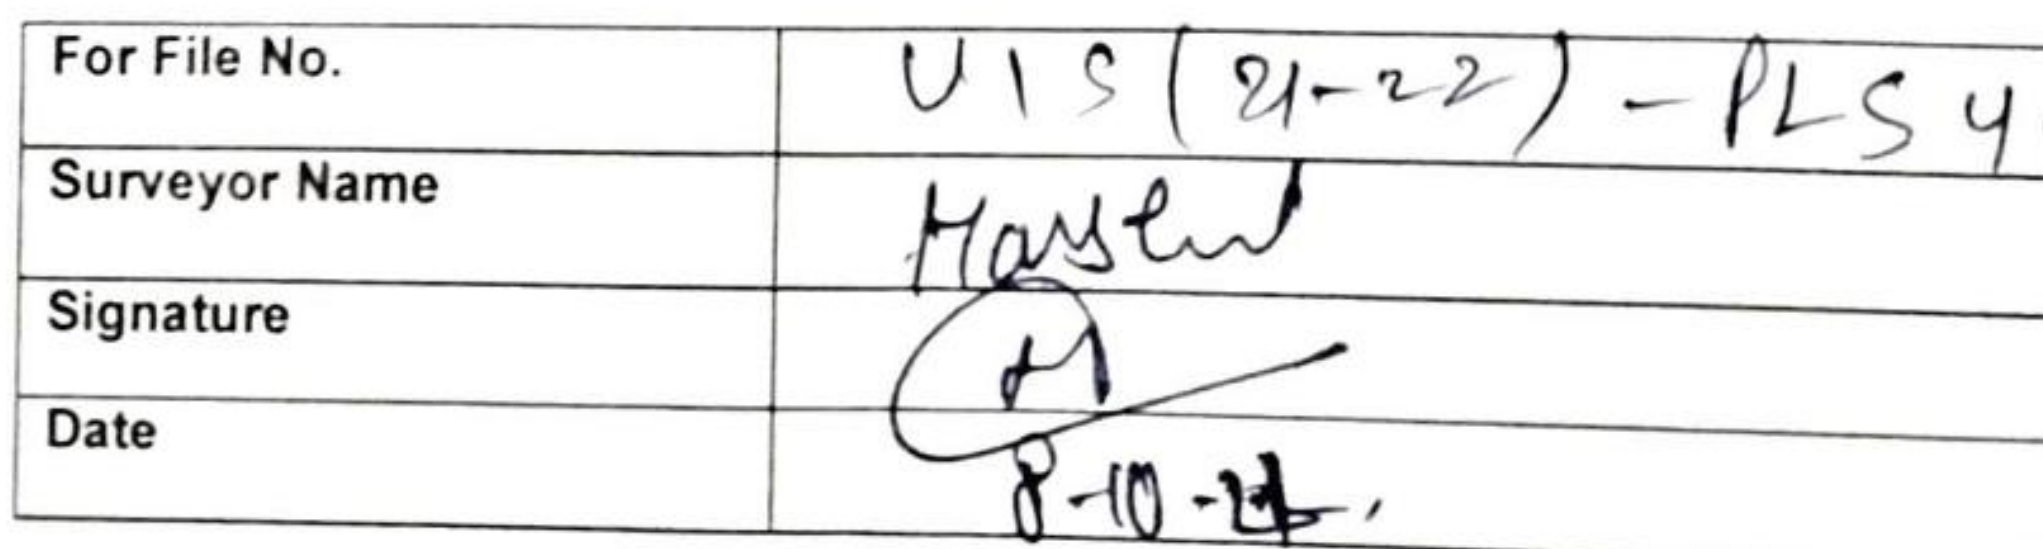 For File No. VIS (21-22) - PLS 4
Surveyor Name
Signature
Date 8-10-